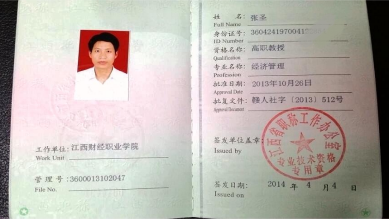 工作单位:江西财经职业学院
Work Unit
管理号:3600013102047
File No.
姓名:张圣
Full Name
身份证号:3604241970041
ID Number
资格名称:高职教授
Qualification
专业名称:经济管理
Profession
批准日期:2013年10月26日
Approval Date
批复文号:赣人社字〔2013〕512号
Approval Document
签发单位盖章:
Issued by
江西省职称工作办公室
专业技术资格
专用章
签发日期:2014年4月4日
Issued on